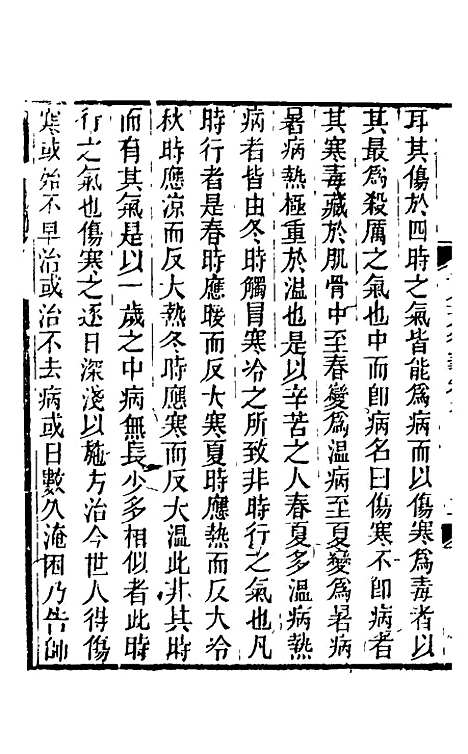 耳其傷於四時之氣皆能爲病而以傷寒爲毒者以
其最爲殺厲之氣也中而卽病名曰傷寒不卽病者
其寒毒藏於肌骨中至春變爲溫病至夏變爲暑病
暑病熱極重於溫也是以辛苦之人春夏多溫病熱
病者皆由冬時觸冒寒冷之所致非時行之氣也凡
時行者是春時應暖而反大寒夏時應熱而反大冷
秋時應凉而反大熱冬時應寒而反大溫此非其時
而有其氣是以一歲之中病無長少多相似者此時
行之氣也傷寒之逐日深淺以施方治今世人得傷
寒或始不早治或治不去病或日數久淹困乃告師